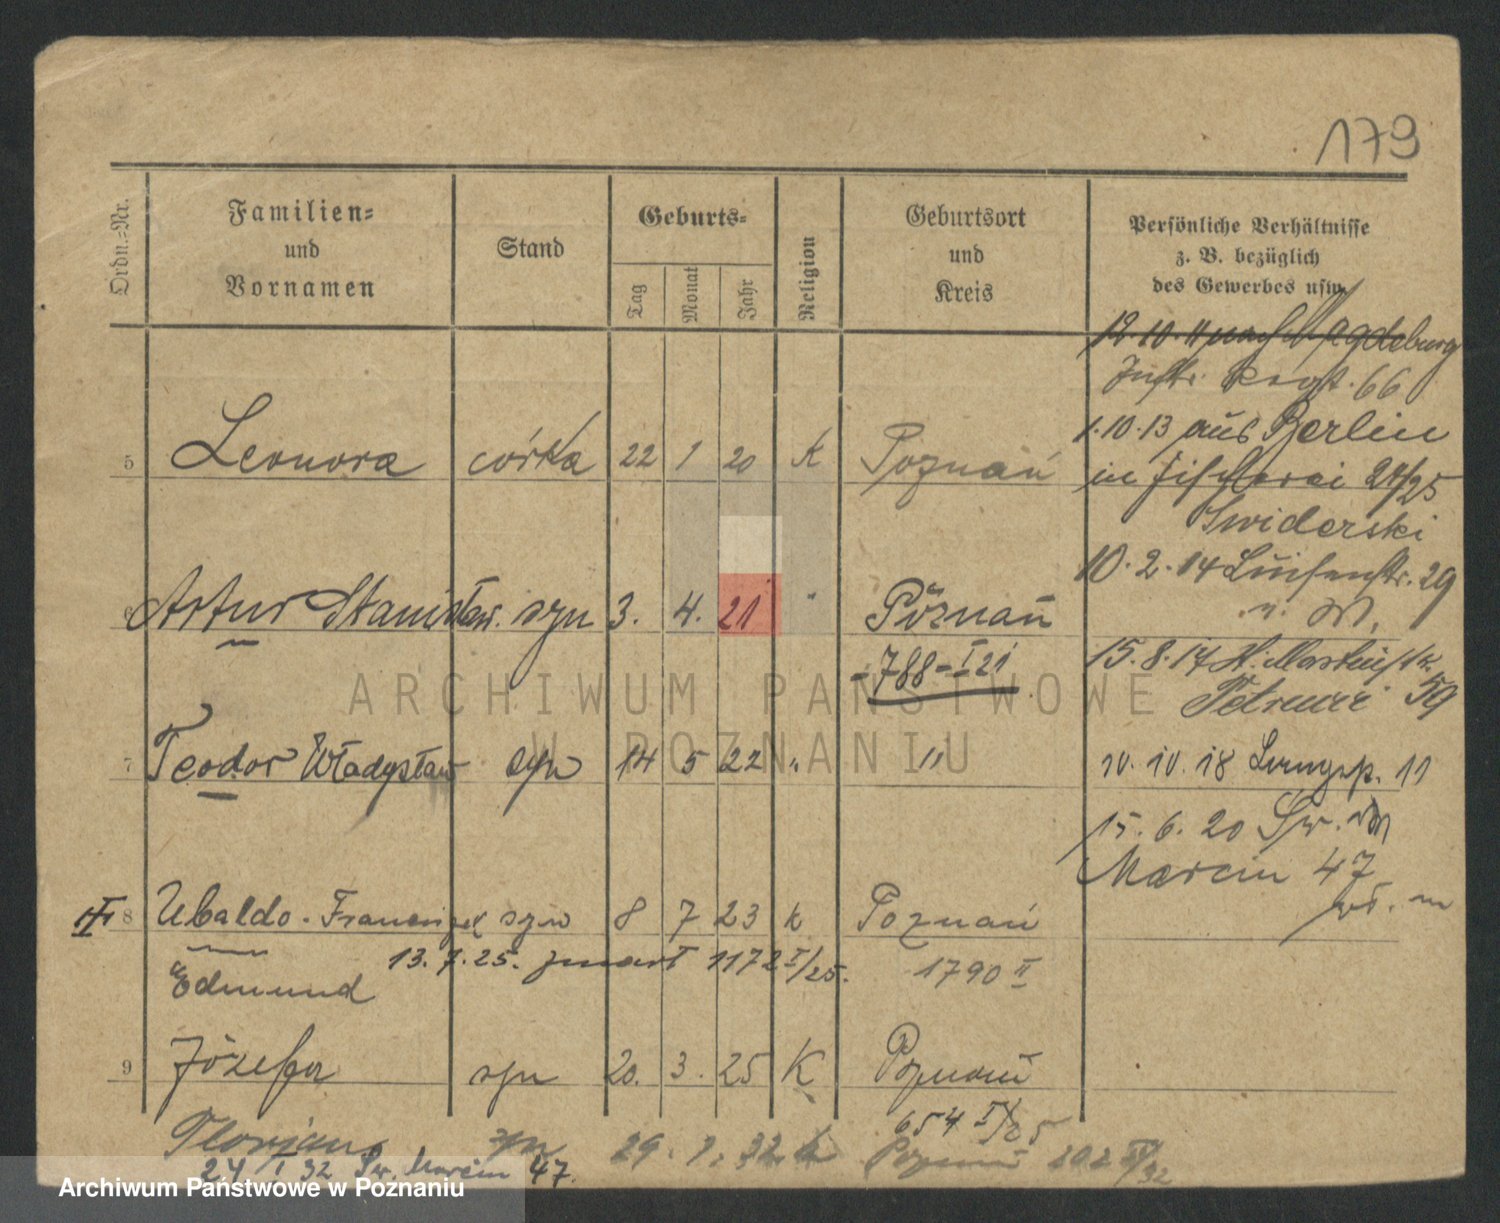 179
Ordn.-Nr.
Familien-
und
Vornamen
Stand
Geburts-
Tag
Monat
Jahr
Religion
Geburtsort
und
Kreis
Persönliche Verhältnisse
z. B. bezüglich
des Gewerbes usw.
12.10.11 nach Magdeburg
Inftr. Regt. 66
5 Leonora córka 22 1 20 K Poznań
1.10.13 aus Berlin
in Fischerei 24/25
Swiderski
10.2.14 Luisenstr. 29
6 Artur Stanisław. syn 3. 4. 21 " Poznań
788 - I 21
15.8.17 St. Martinstr.
59
ARCHIWUM PAŃSTWOWE
W POZNANIU
7 Teodor Władysław syn 14 5 22 " "
10.10.18 11
15.6.20 Św.
Marcin 47
8 Ubaldo. Franciszek syn 8 7 23 k Poznań
13.7.25. zmarł 1172 I/25.
1790 II
Edmund
9 Józef syn 20. 3. 25 K Poznań
654 I/25
Florjan syn 29. 1. 32. k Poznań 202 IV/32
24 I 32 Św. Marcin 47.
Archiwum Państwowe w Poznaniu